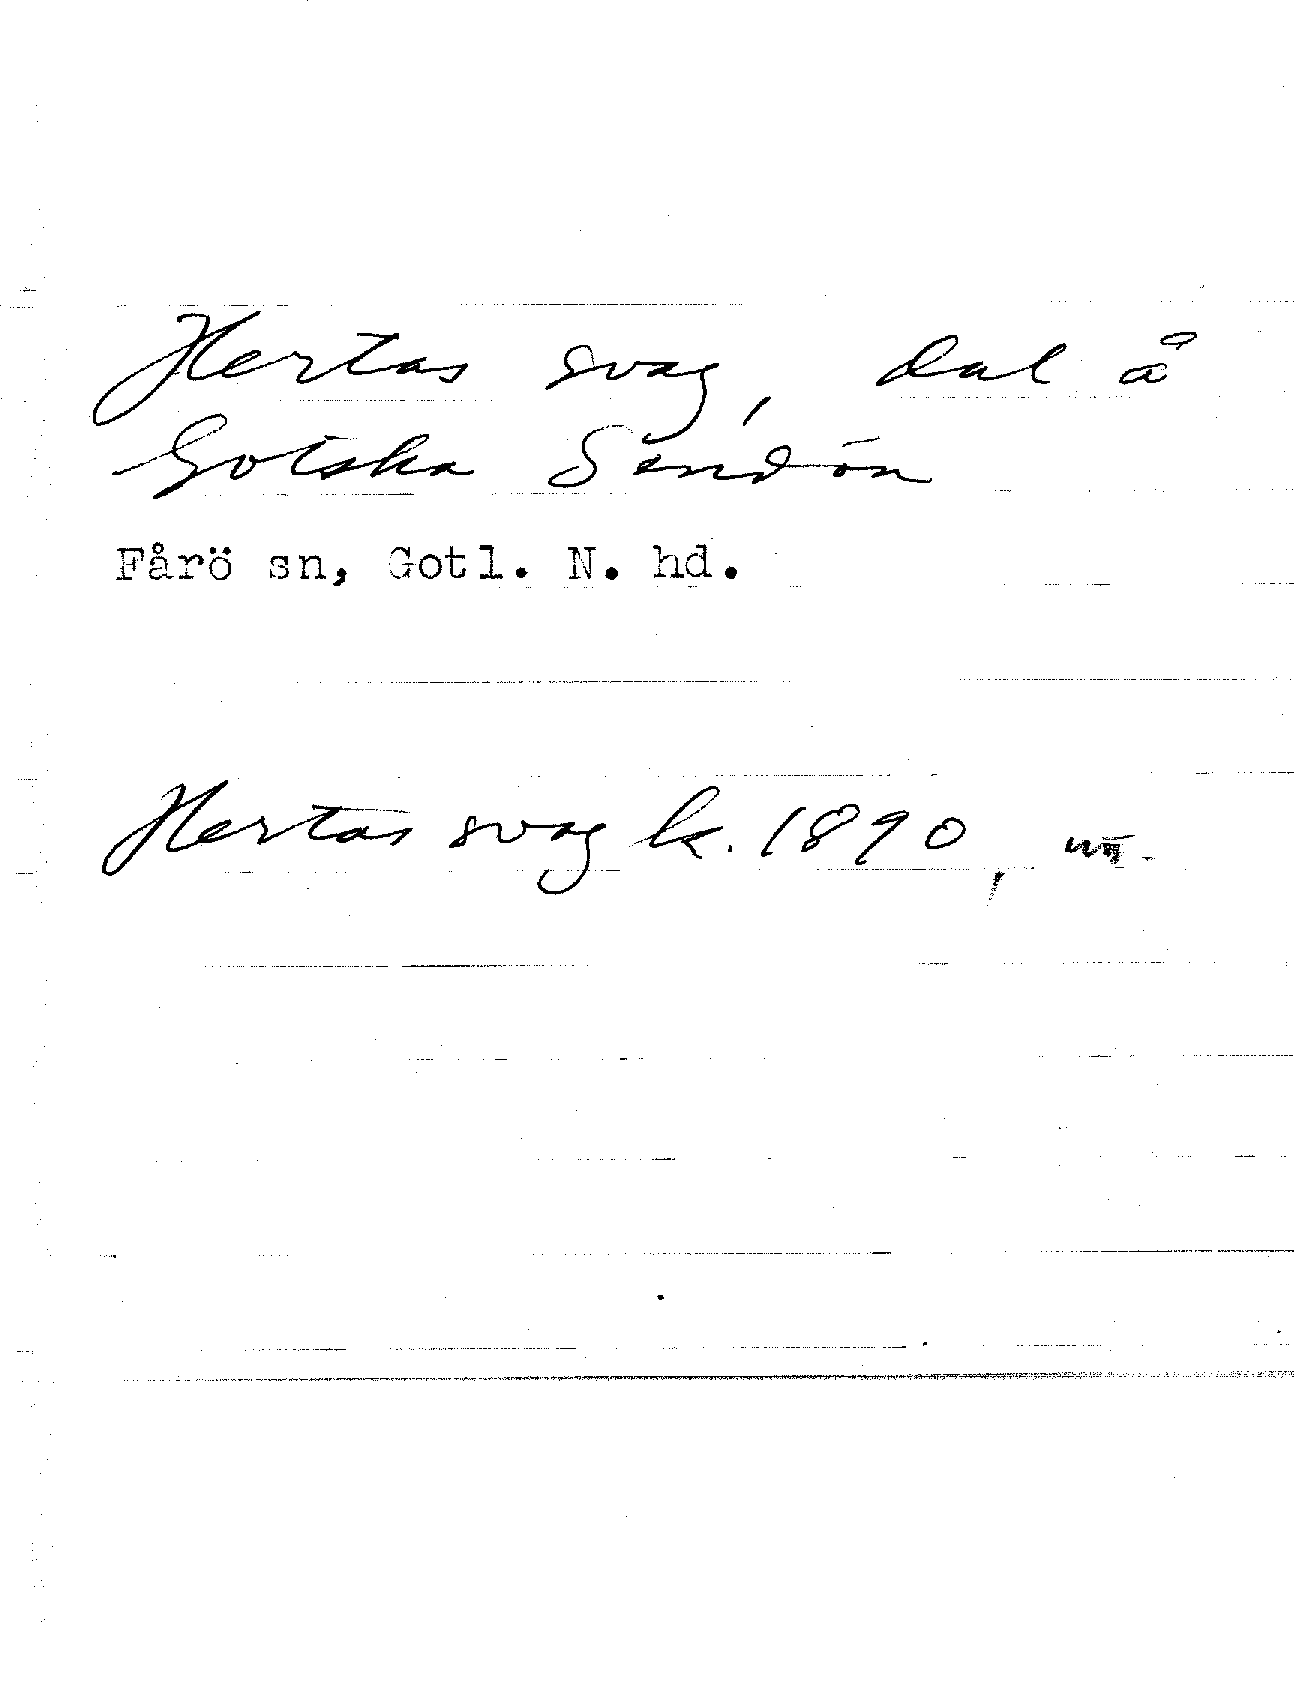 Hertas svag, dal å
Gotska Sandön
Fårö sn, Gotl. N. hd.
Hertas svag k. 1890,